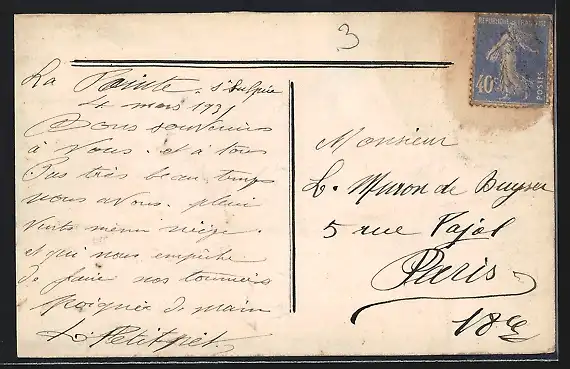 3
RÉPUBLIQUE FRANÇAISE
40c
POSTES
La Pointe. St Sulpice
4 mars 193
Bons souvenirs
à vous. et à tous
Pas très beau temps
nous avons. pluie
vents même neige.
et qui nous empêche
de faire nos tournées
Poignée de main
L. Petitpret
Monsieur
L. Muron de Buyser
5 rue Pajol
Paris
18e